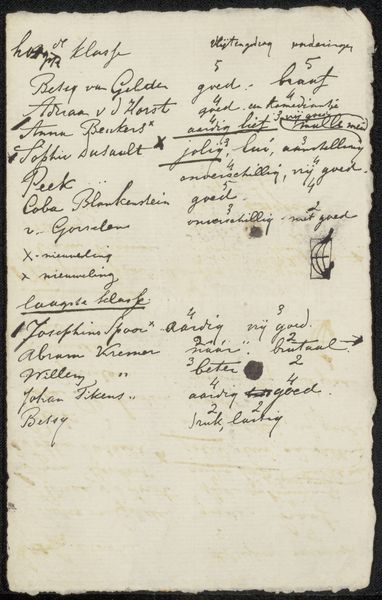 klasse
5 5
Betsy van Gelder goed. braaf
Adriaan v. d. Horst goed en
4 3 vrij goed
Anna Beukers x aardig lief
Sophie Dusault x jolig, lui, aanstelling
Peek onverschillig, vrij goed.
Coba Blankenstein goed.
3 2
v. Gorselen onverschillig - niet goed
x - nieuweling
x nieuweling
laagste klasse
4 3
Josephine Spoor x aardig vrij goed.
2 2
Abram Kremer naar " brutaal
Willem " 3 beter 2
4 4
Johan Tikens " aardig goed.
2 2
Betsy druk, lastig